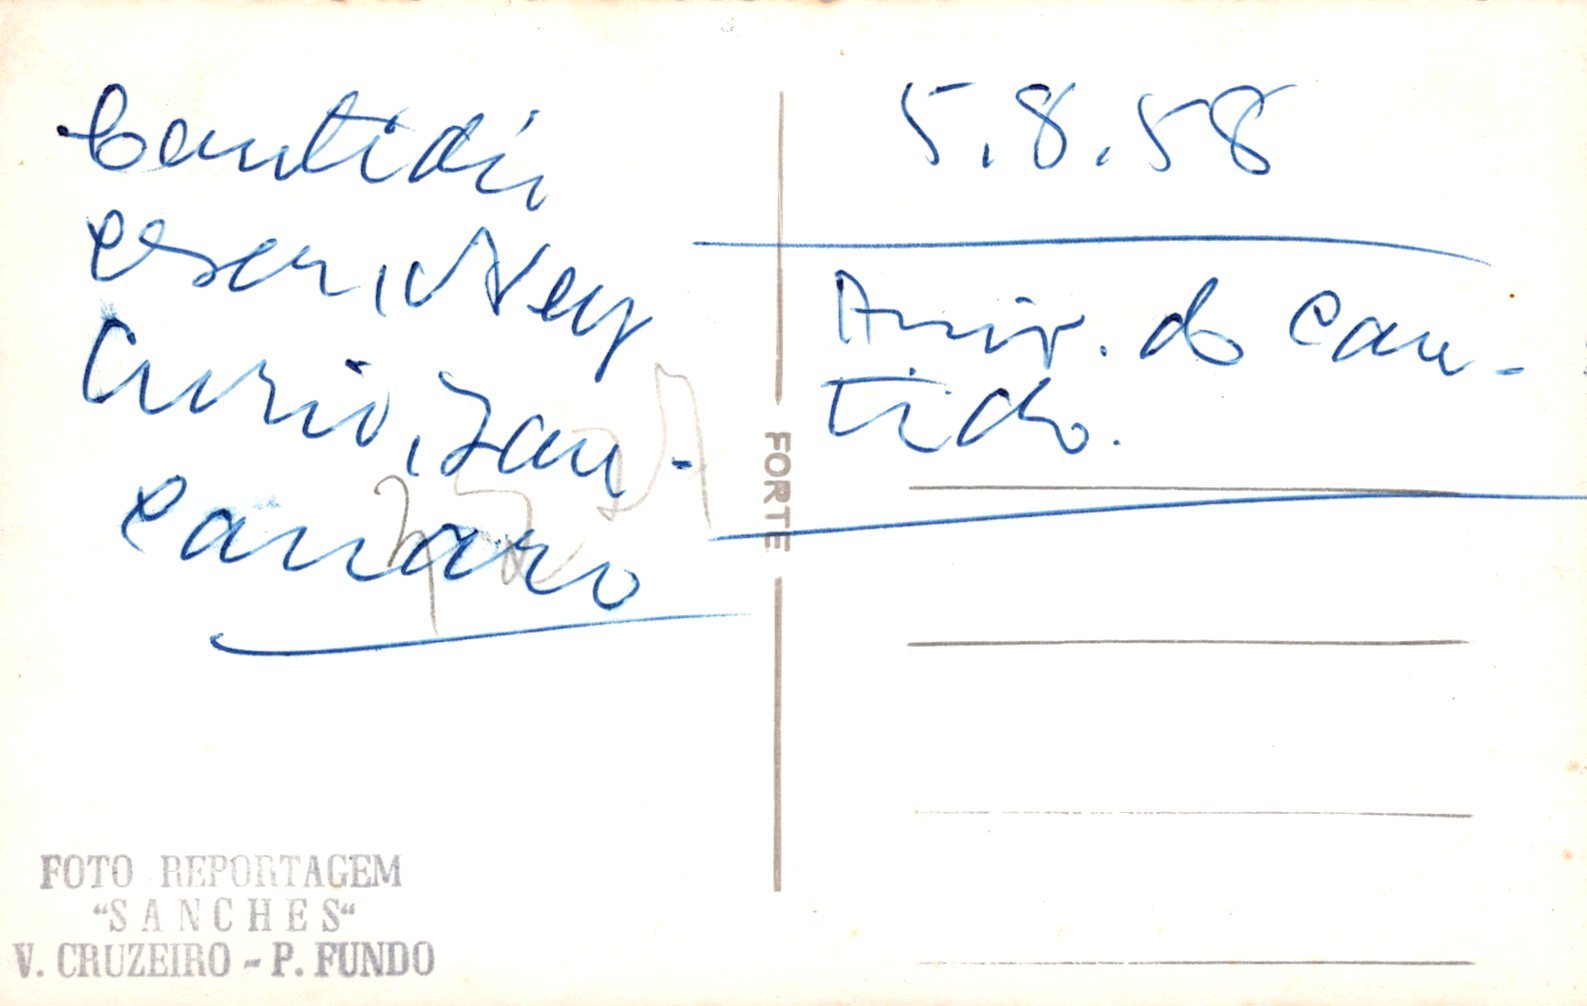 Cantidi,
esser, Ney
Curio, Zan-
canaro
5.8.58
Aniv. do Can-
tido.
FORTE
FOTO REPORTAGEM
“SANCHES“
V. CRUZEIRO - P. FUNDO